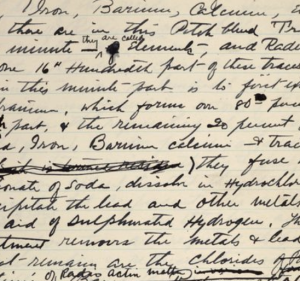 Iron, Barium, Calcium, t
there are in this Pitch blend "Tr
they are called
minute Elements", and Radi
one 16th Hundredth part of these trace
in this minute part is to first ex
ranium, which forms over 80 per
part, & the remaining 20 percent
d, Iron, Barium calcium & trac
) they fuse
onate of Soda, dissolve in Hydrochlor
cipitate the lead and other metals
aid of Sulphurated Hydrogen. Th
tment removes the metals & lead
st remains are the chlorides of
of Radio active matter